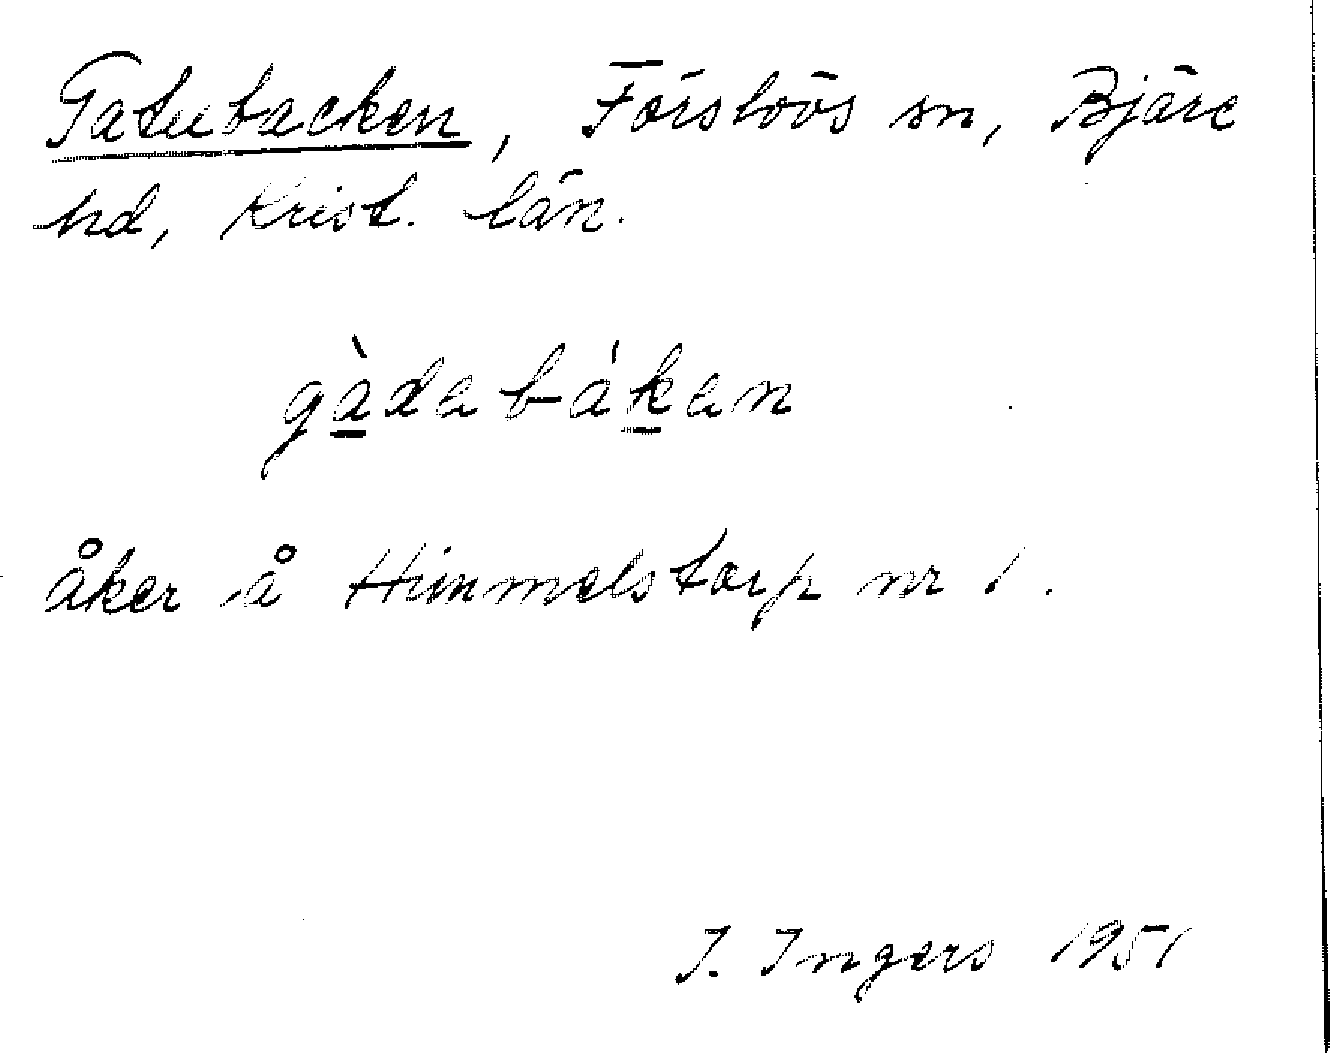 Gatubacken, Förslövs sn, Bjäre
hd, Krist. län.
gàdabákan
åker å Himmelstorp nr 1.
I. Ingers 1951